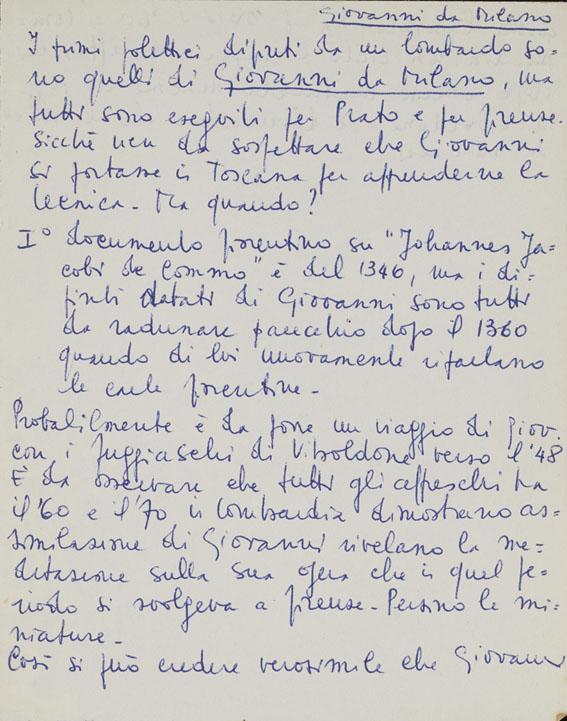 Giovanni da Milano
I primi polittici dipinti da un lombardo so-
no quelli di Giovanni da Milano, ma
tutti sono eseguiti per Prato e per Firenze.
Sicchè vien da sospettare che Giovanni
si portasse in Toscana per apprenderne la
tecnica - Ma quando?
I° documento fiorentino su "Johannes Ja-
cobi de Commo" è del 1346, ma i di-
pinti datati di Giovanni sono tutti
da radunare parecchio dopo il 1360
quando di lui nuovamente riparlano
le carte fiorentine -
Probabilmente è da porre un viaggio di Giov.
con i Fuggiaschi di Viboldone verso il '48
È da osservare che tutti gli affreschi tra
il '60 e il '70 in Lombardia dimostrano as-
similazione di Giovanni rivelano la me-
ditazione sulla sua opera che in quel pe-
riodo si svolgeva a Firenze - Persino le mi-
niature -
Così si può credere verosimile che Giovanni